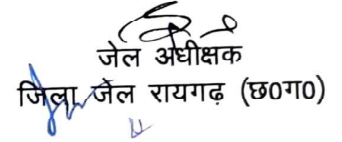 जेल अधीक्षक
जिला जेल रायगढ़ (छ0ग0)